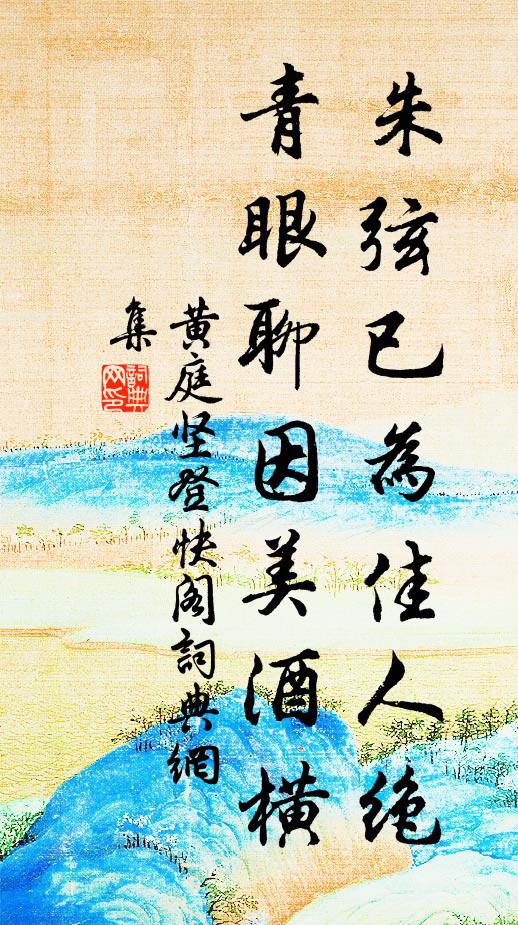 朱弦已為佳人绝
青眼聊因美酒橫
黄庭坚登快阁詞典網
集
詞典
网印